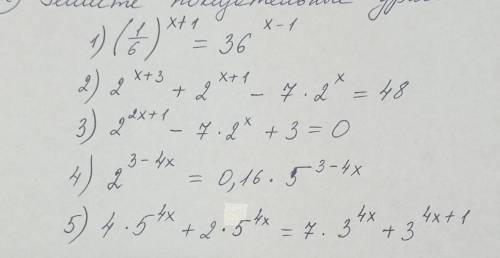 Решите показательные
1) (1/6)^(x+1) = 36^(x-1)
2) 2^(x+3) + 2^(x+1) - 7 · 2^x = 48
3) 2^(2x+1) - 7 · 2^x + 3 = 0
4) 2^(3-4x) = 0,16 · 5^(3-4x)
5) 4 · 5^(4x) + 2 · 5^(4x) = 7 · 3^(4x) + 3^(4x+1)